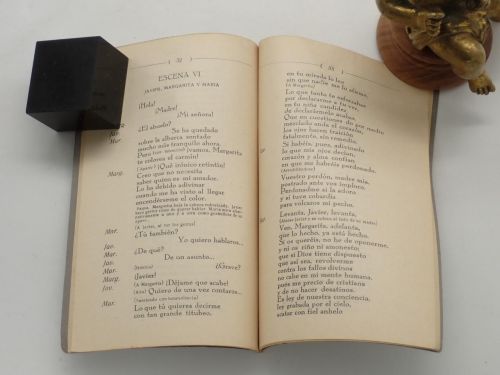 ( 32 )
ESCENA VI
JAVIER, MARGARITA Y MARIA
¡Hola!
¡Madre!
¡Mi señora!
Jav.
Mar.
¿El abuelo?
Se ha quedado
sobre la alberca sentado
mucho más tranquilo ahora.
Pero ¡vamos, Margarita
te colorea el carmín!
(¡Qué irónico retintín)
Marg.
Creo que no necesita
saber quien es mi amador.
Lo ha debido adivinar
cuando me ha visto al llegar
encendérseme el color.
(A Javier, si no los gusta)
Mar.
¿Tú también?
Jav.
Yo quiero hablaros...
Mar.
¿De qué?
Jav.
De un asunto...
Mar.
¿Grave?
Marg.
¡Javier!
Jav.
(A Margarita) ¡Déjame que acabe!
(Alto) Quiero de una vez contaros...
Mar.
Lo que tú quieras decirme
con tan grande titubeo,
( 33 )
en tu mirada lo leo
sin que nadie me lo afirme.
(A Margarita)
Lo que tanto te esforzabas
por declararme a tu vez,
en tu niña candidez
de declararlo acabas.
Que en cuestiones do por medio
mezclado anda el corazón,
los ojos hacen traición
fatalmente, sin remedio.
Si habéis, pues, adivinado
lo que mis ojos decían,
corazón y alma confían
en que me habréis perdonado.
(Arrodillándose)
Vuestro perdón, madre mía,
postrado ante vos imploro.
Perdonadme si la adoro
y si tuve cobardía
para volcaros mi pecho.
Levanta, Javier, levanta,
Ven, Margarita, adelanta,
que lo hecho, ya está hecho.
Si os queréis, no he de oponerme,
y ni os riño ni amonesto;
que si Dios tiene dispuesto
que así sea, revolverme
contra los fallos divinos
no cabe en mi mente humana,
pues me precio de cristiana
y de no hacer desatinos.
Es ley de nuestra conciencia,
ley grabada por el cielo,
acatar con fiel anhelo